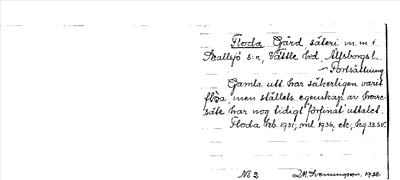 Floda Gård, säteri m. m. i
Skallsjö s:n, Vättle hd, Älfsborgs l.
— Fortsättning
Gamla utt. har säkerligen varit
flòa, men ställets egenskap av herre
säte har nog tidigt förfinat uttalet.
Floda hb. 1931, ml 1936, ek, hg 33 SV.
No 2
1938.